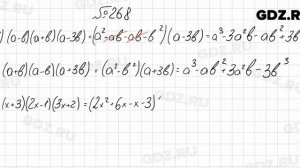 GDZ.RU
№268
) (a-b)(a+b)(a-3b)=(a²+ab-ab-b²)(a-3b)=a³-3a²b-ab²+3b
(a+b)(a-b)(a+3b)=(a²-b²)(a+3b)=a³-ab²+3a²b-3b³
(x+3)(2x-1)(3x+2)=(2x²+6x-x-3)